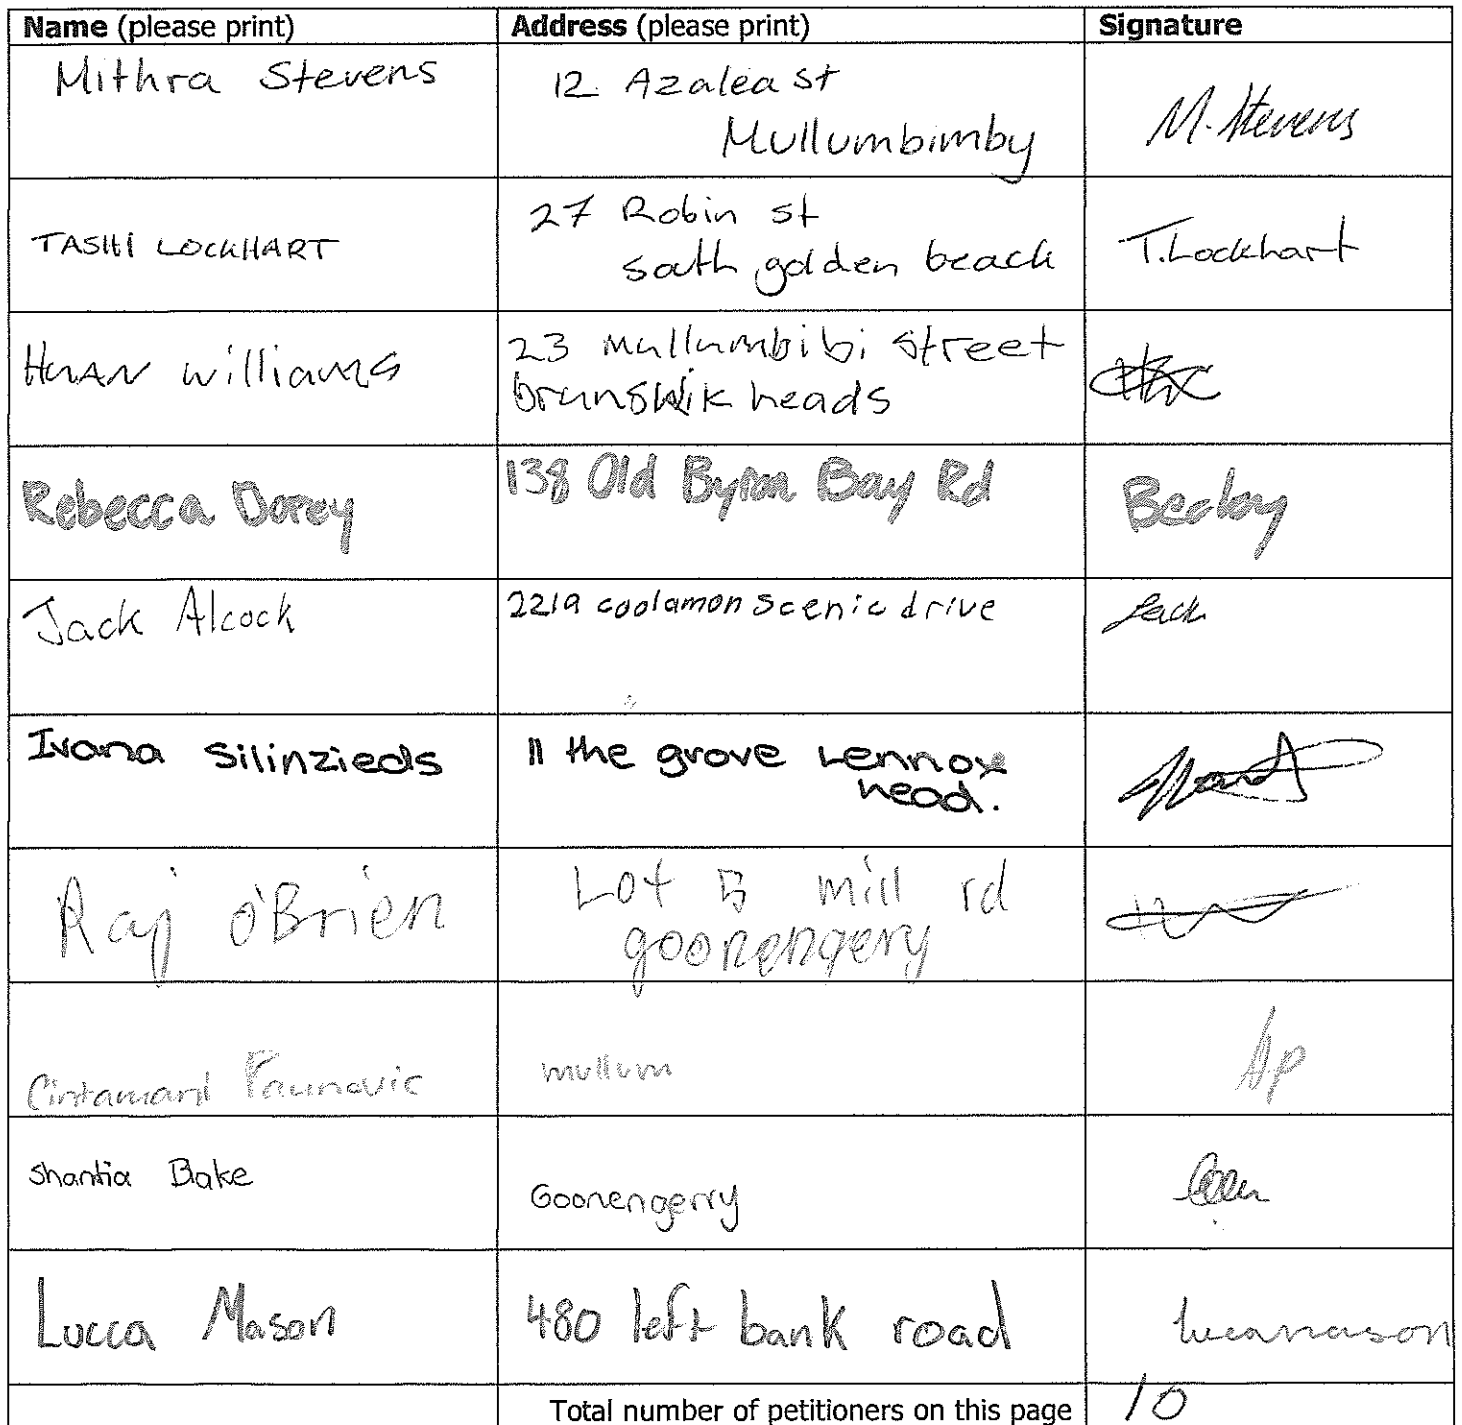 Name (please print) Address (please print) Signature
Mithra Stevens 12 Azalea st
Mullumbimby M. Stevens
TASHI LOCKHART 27 Robin st
south golden beach T.Lockhart
HuAN williams 23 mullumbibi street
brunswik heads
Rebecca Dorey 138 Old Byron Bay Rd Becky
Jack Alcock 2219 coolamon scenic drive Jack
Ivana Silinzieds 11 the grove Lennox
head.
Raj o'Brien Lot 5 mill rd
goonengery
Cintamani Paunovic mullum AP
Shantia Bake Goonengerry
Lucca Mason 480 left bank road luccamason
Total number of petitioners on this page 10